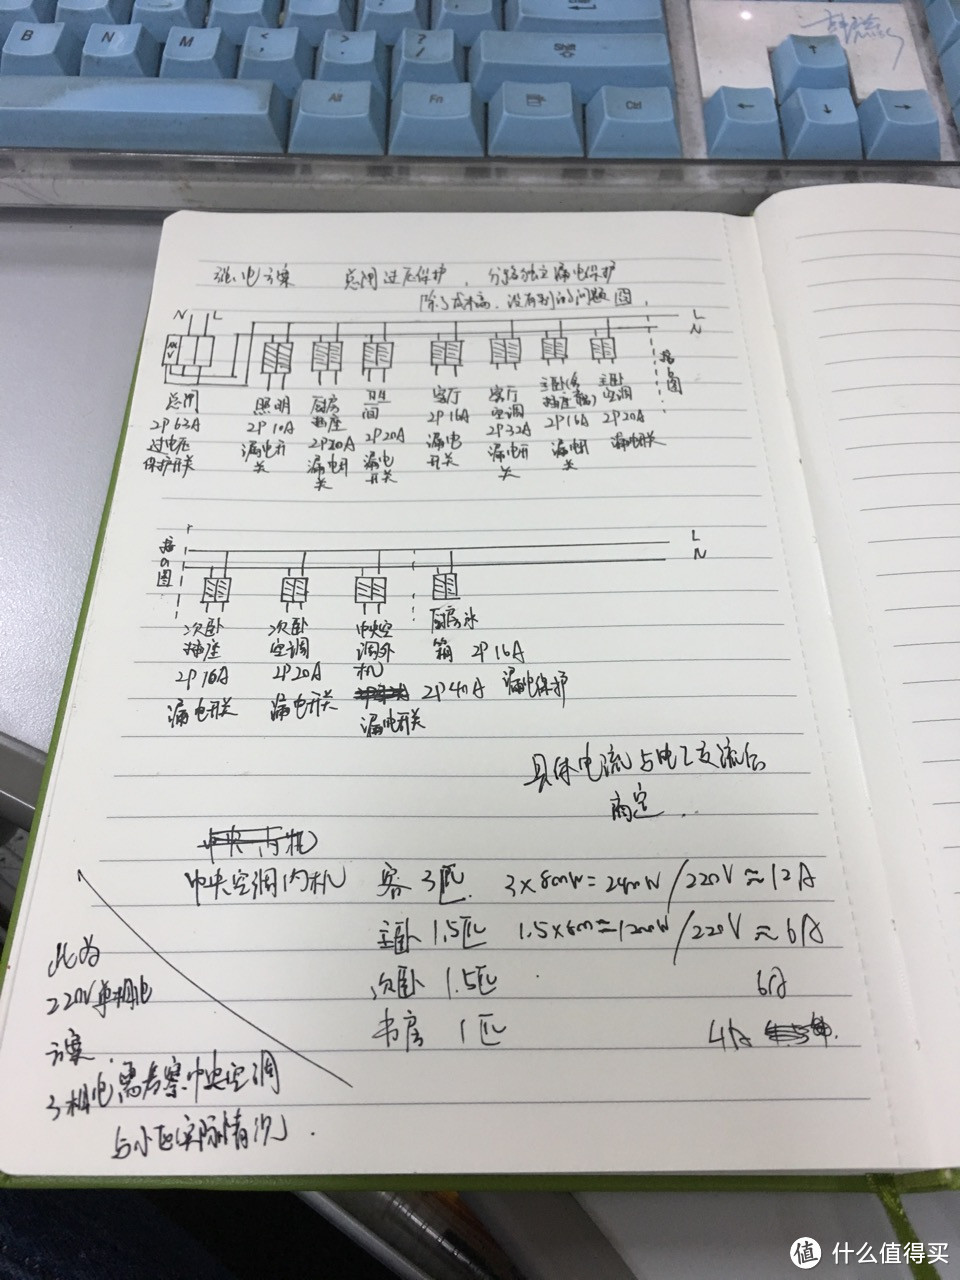 B N M < , > . ? / Shift
Alt Fn Ctrl
← ↑ ↓ →
强电方案 总闸过压保护，分路独立漏电保护
除了成本高，没有别的问题
N L
L
N
接
图
总闸
2P 63A
过电压
保护开关
照明
2P 10A
漏电开
关
厨房
插座
2P20A
漏电开
关
间
2P20A
漏电
开关
客厅
2P 16A
漏电
开关
客厅
空调
2P32A
漏电开
关
主卧
插座
2P16A
漏电开
关
主卧
空调
2P20A
漏电开关
接
图
L
N
次卧
插座
2P 16A
漏电开关
次卧
空调
2P 20A
漏电开关
中央空
调外
机
2P40A
漏电开关
厨房冰
箱 2P 16A
漏电保护
具体电流与电工交流后
商定...
中央空调内机 客 3匹 3×800W=2400W/220V≈12A
主卧 1.5匹 1.5×800=1200W/220V≈6A
次卧 1.5匹 6A
书房 1匹 4A
此为
220V单相电
方案
3相电需考察中央空调
与小区实际情况.
值 什么值得买